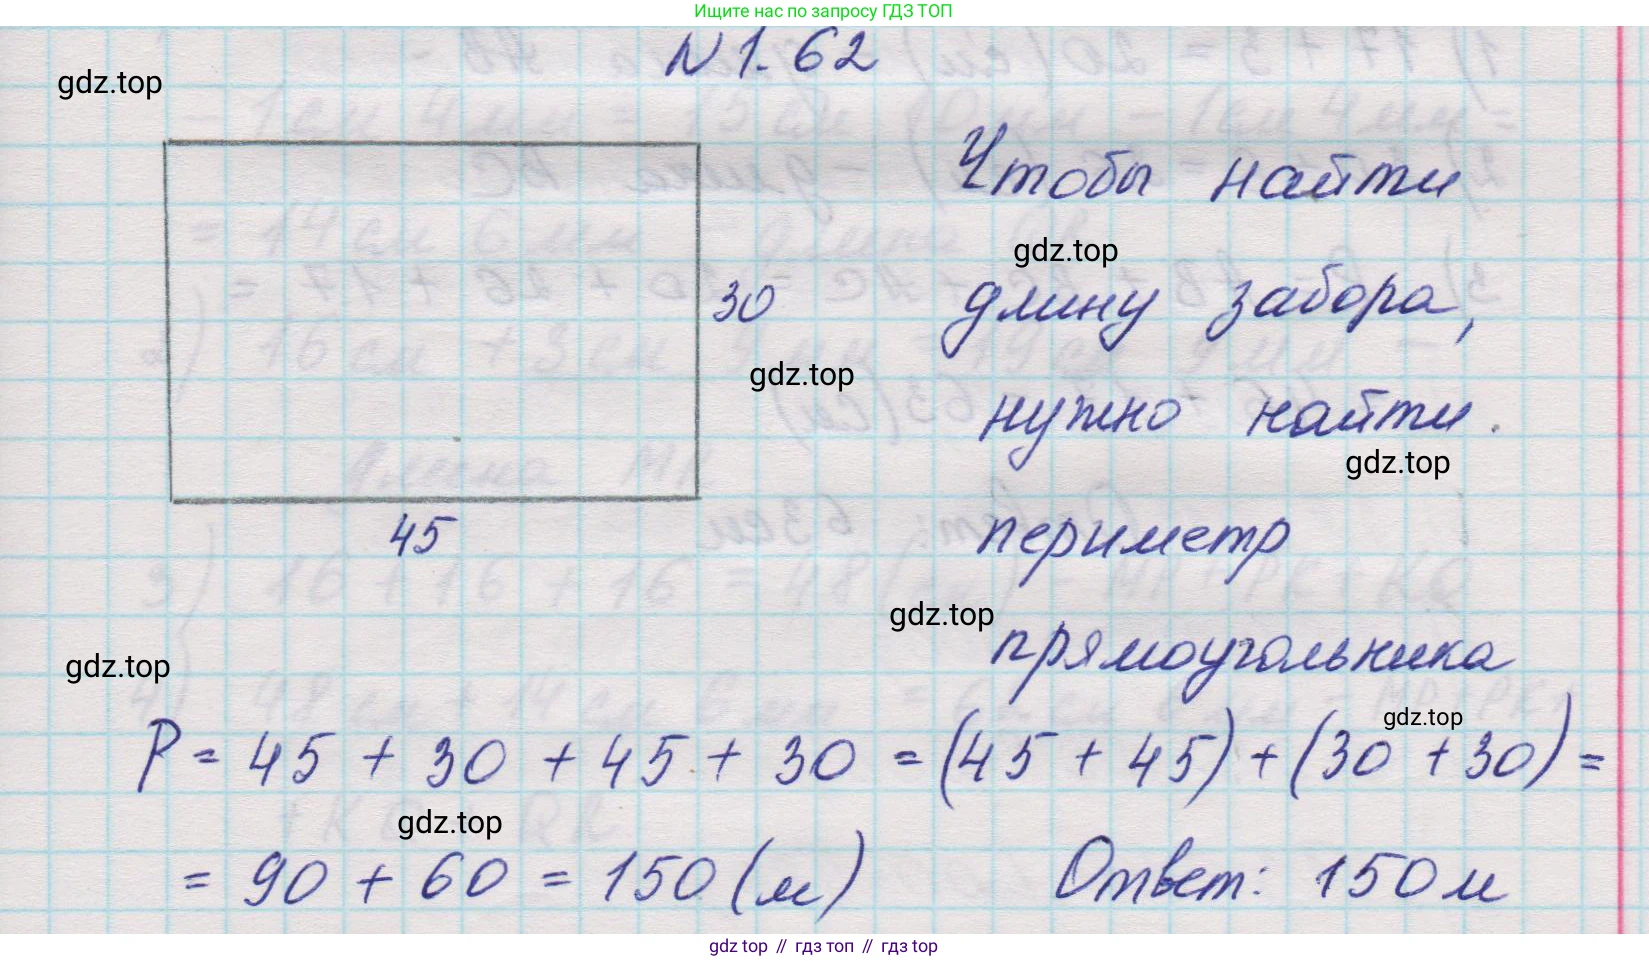 Ищите нас по запросу ГДЗ ТОП
N 1.62
gdz.top
Чтобы найти
gdz.top
30
длину забора,
gdz.top
нужно найти
gdz.top
45
периметр
gdz.top
прямоугольника
gdz.top
gdz.top
P = 45 + 30 + 45 + 30 = (45 + 45) + (30 + 30) =
gdz.top
= 90 + 60 = 150 (м)
Ответ: 150 м
gdz.top // гдз топ // гдз top